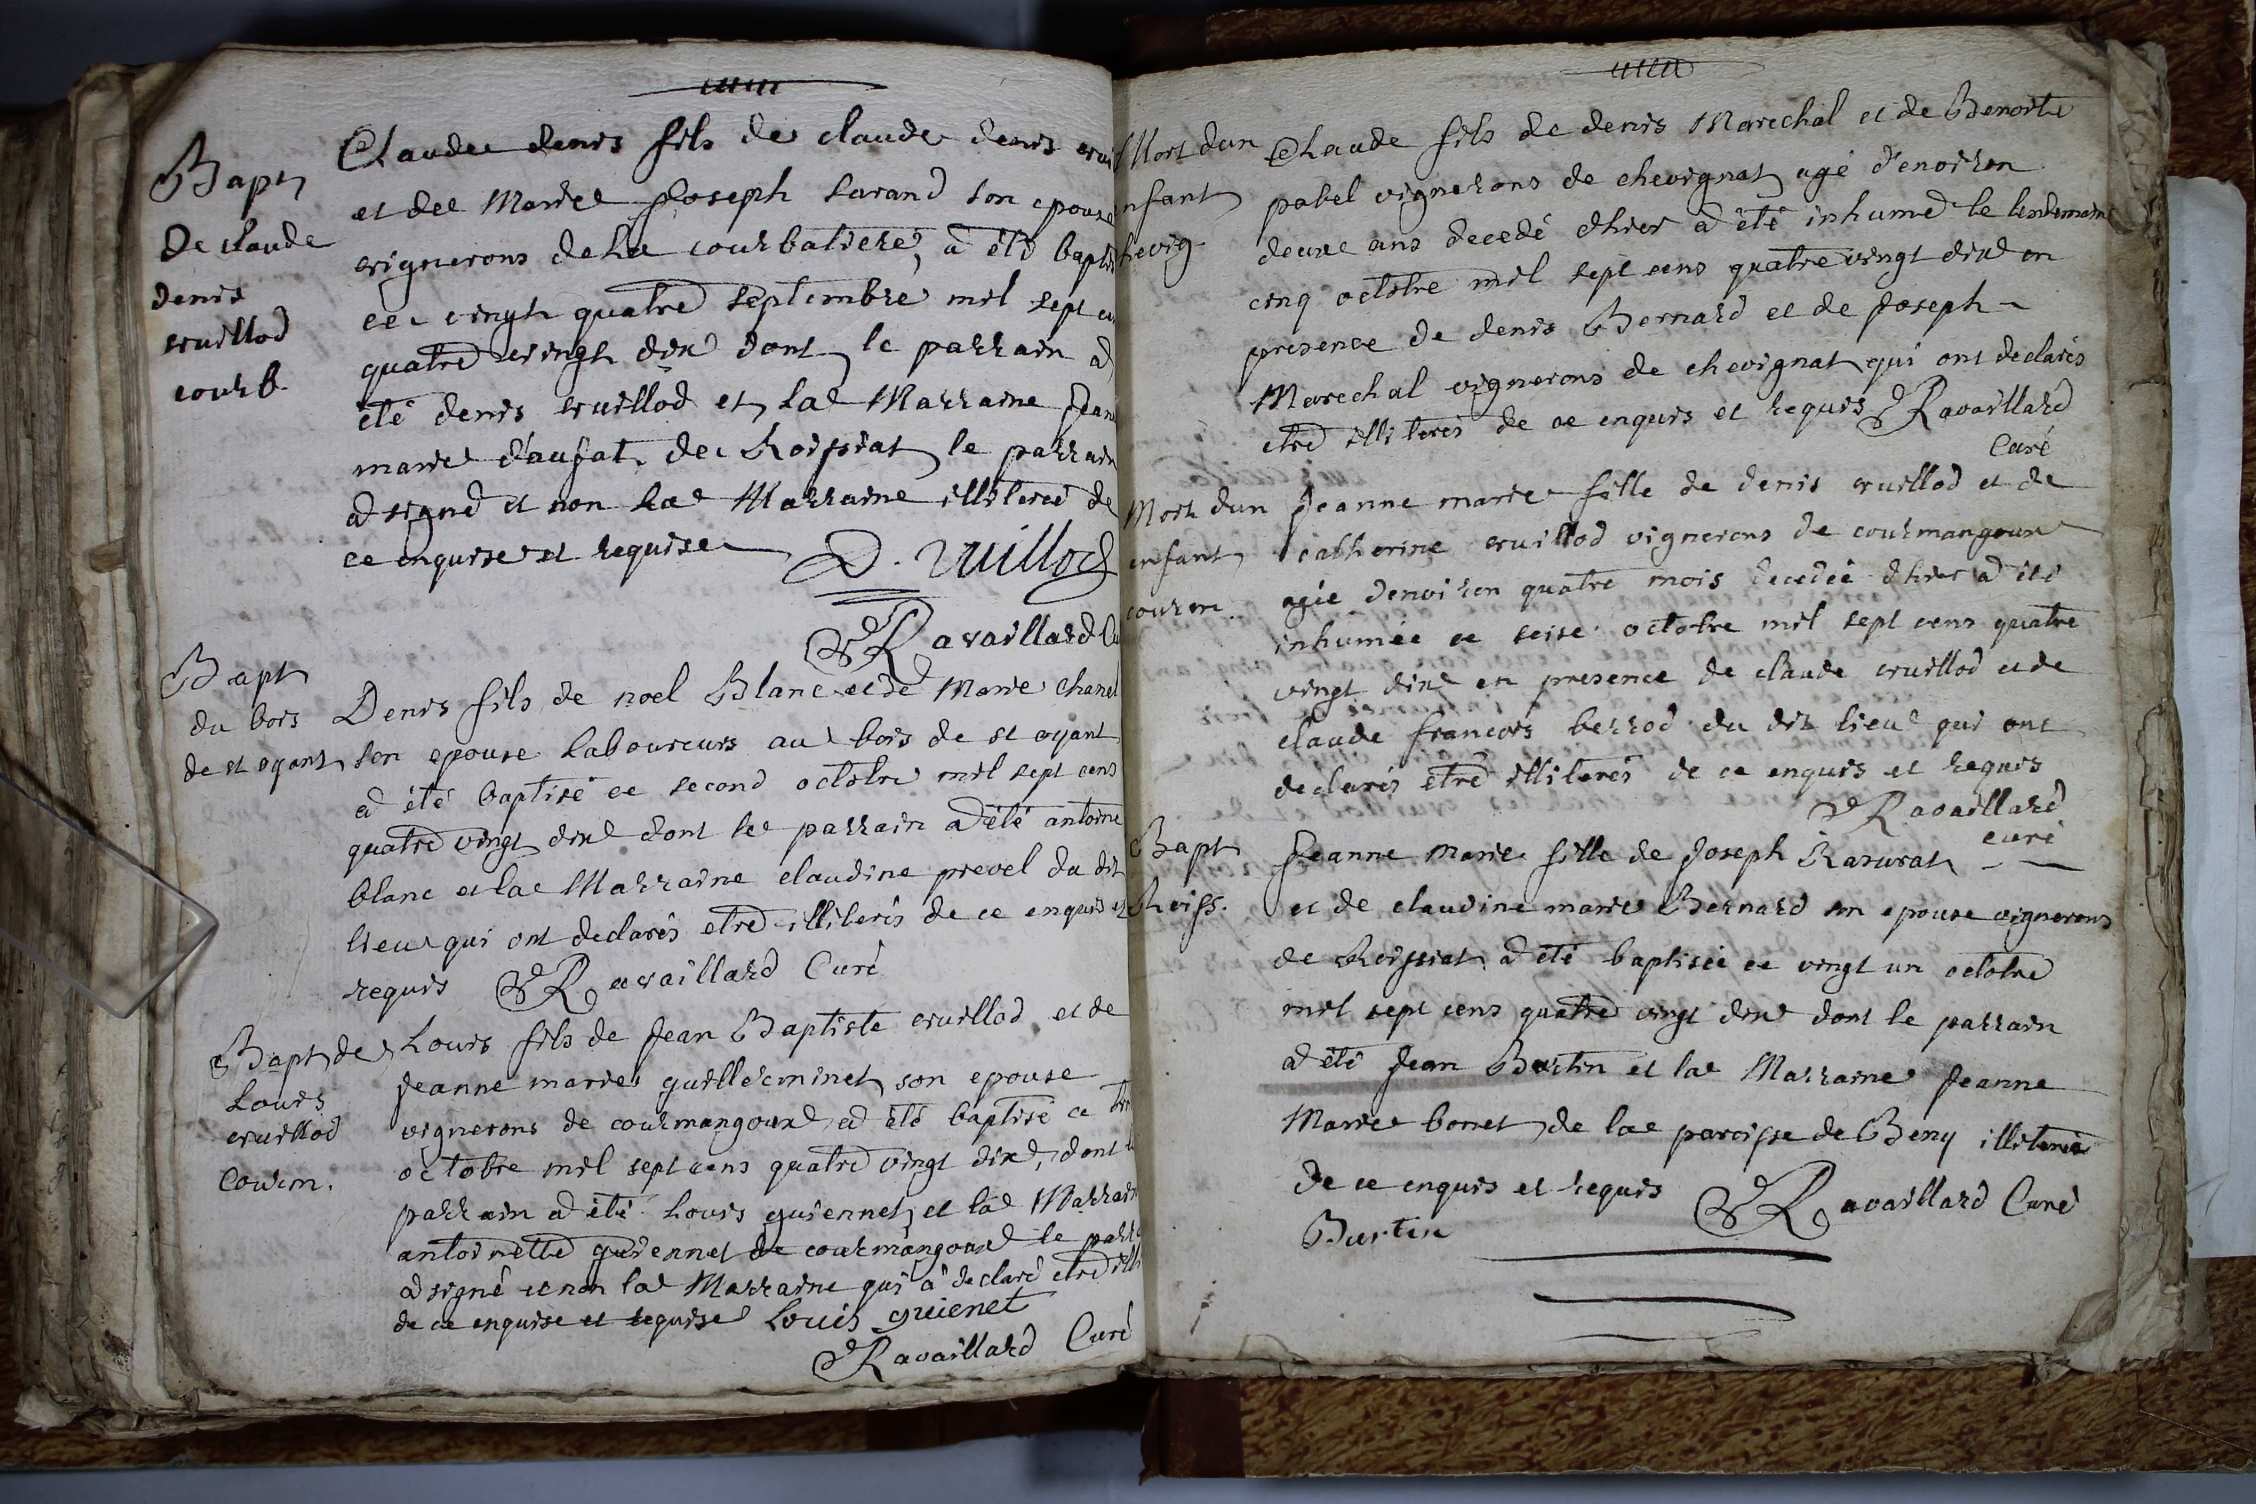 Bapt
de claude
denis
vuillod
courb.
Claude denis fils de claude denis vuil
et de Marie Joseph Curand son epouse
vignerons de la courbatiere, a été bapti
ce vingt quatre septembre mil sept cen
quatre vingt dix dont le parrain a
été denis vuillod et la Marraine Jean
marie daujat de Roissiat le parrain
a signé et non la Marraine illiteré de
ce enquise et requise D. Vuillod
Ravaillard Cu
Bapt
du bois
de st oyant
Denis fils de noel Blanc et de Marie chanel
son epouse laboureurs au bois de st oyant
a été baptisé ce second octobre mil sept cens
quatre vingt dix dont le parrain a été antoine
blanc et la Marraine claudine prevel du dit
lieu qui ont declarés etre illiterés de ce enquis et
requis Ravaillard Curé
Bapt de
Louis
vuillod
Courm.
Louis fils de Jean Baptiste vuillod et de
Jeanne marie guilleminet son epouse
vignerons de courmangoux a été baptisé ce
octobre mil sept cens quatre vingt dix, dont l
parrain a été Louis guiennet et la Marrain
antoinette guiennet de courmangoux le parra
a signé et non la Marraine qui a declaré etre illi
de ce enquise et requise Louis guienet
Ravaillard Curé
Mort dun
nfant
hevig.
Claude fils de denis Marechal et de Benoite
pobel vignerons de chevignat agé d'environ
deux ans decedé d'hier a été inhumé le lendemain
cinq octobre mil sept cens quatre vingt dix en
presence de denis Bernard et de Joseph
Marechal vignerons de chevignat qui ont declarés
etre illiterés de ce enquis et requis Ravaillard
Curé
Mort dun
enfant
courm.
Jeanne marie fille de denis vuillod et de
catherine vuillod vignerons de courmangoux
agée denviron quatre mois decedée d'hier a été
inhumée ce seise octobre mil sept cens quatre
vingt dix en presence de claude vuillod et de
claude francois berrod du dit lieu qui ont
declarés etre illiterés de ce enquis et requis
Ravaillard
curé
Bapt
Roiss.
Jeanne Marie fille de Joseph Rasurat
et de claudine marie Bernard son epouse vignerons
de Roissiat a été baptisée ce vingt un octobre
mil sept cens quatre vingt dix dont le parrain
a été Jean Burtin et la Marraine Jeanne
Marie bonet de la paroisse de Beny illiterée
de ce enquis et requis Ravaillard Curé
Burtin